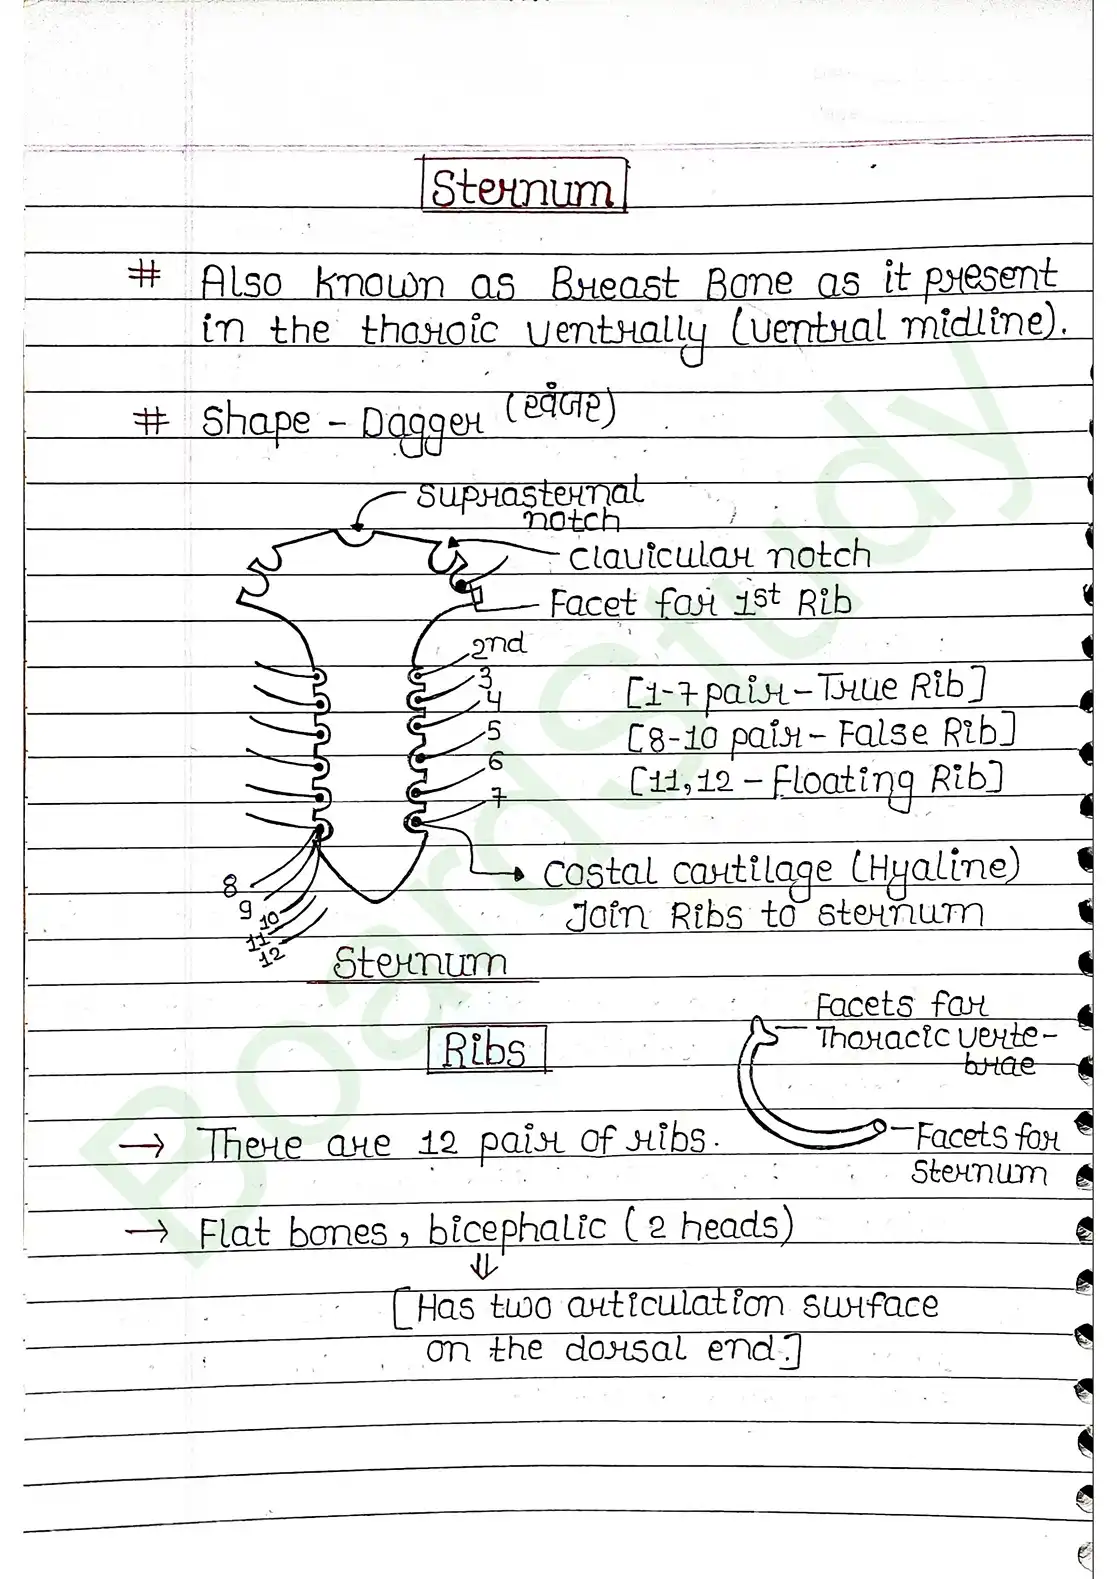 Sternum
# Also known as Breast Bone as it present
in the thoroic ventrally (ventral midline).
# Shape - Dagger (खंजर)
Suprasternal
notch
Clavicular notch
Facet for 1st Rib
2nd
3
4
5
6
7
[1-7 pair - True Rib]
[8-10 pair - False Rib]
[11,12 - Floating Rib]
Costal cartilage (Hyaline)
Join Ribs to sternum
8
9
10
11
12
Sternum
Facets for
Thoracic verte-
brae
Ribs
→ There are 12 pair of ribs.
Facets for
Sternum
→ Flat bones, bicephalic (2 heads)
⇓
[Has two articulation surface
on the dorsal end.]
BoardStudy